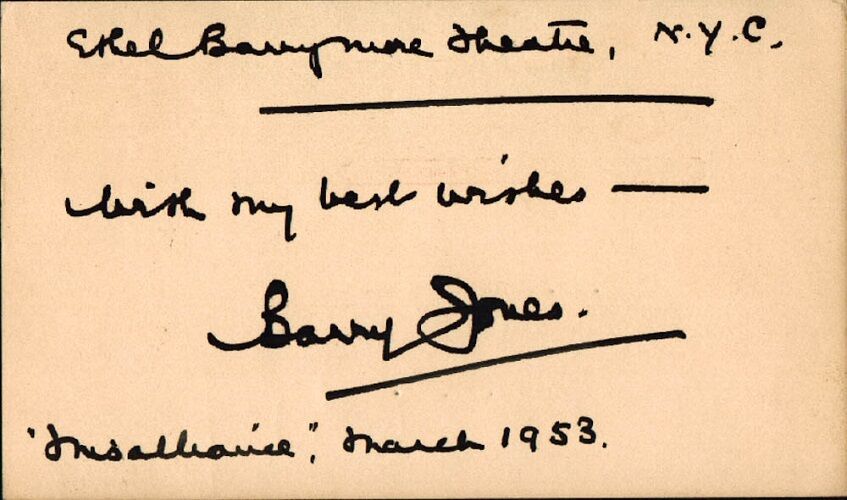 Ethel Barrymore Theatre, N.Y.C.
With my best wishes —
Barry Jones.
"Misalliance", March 1953.